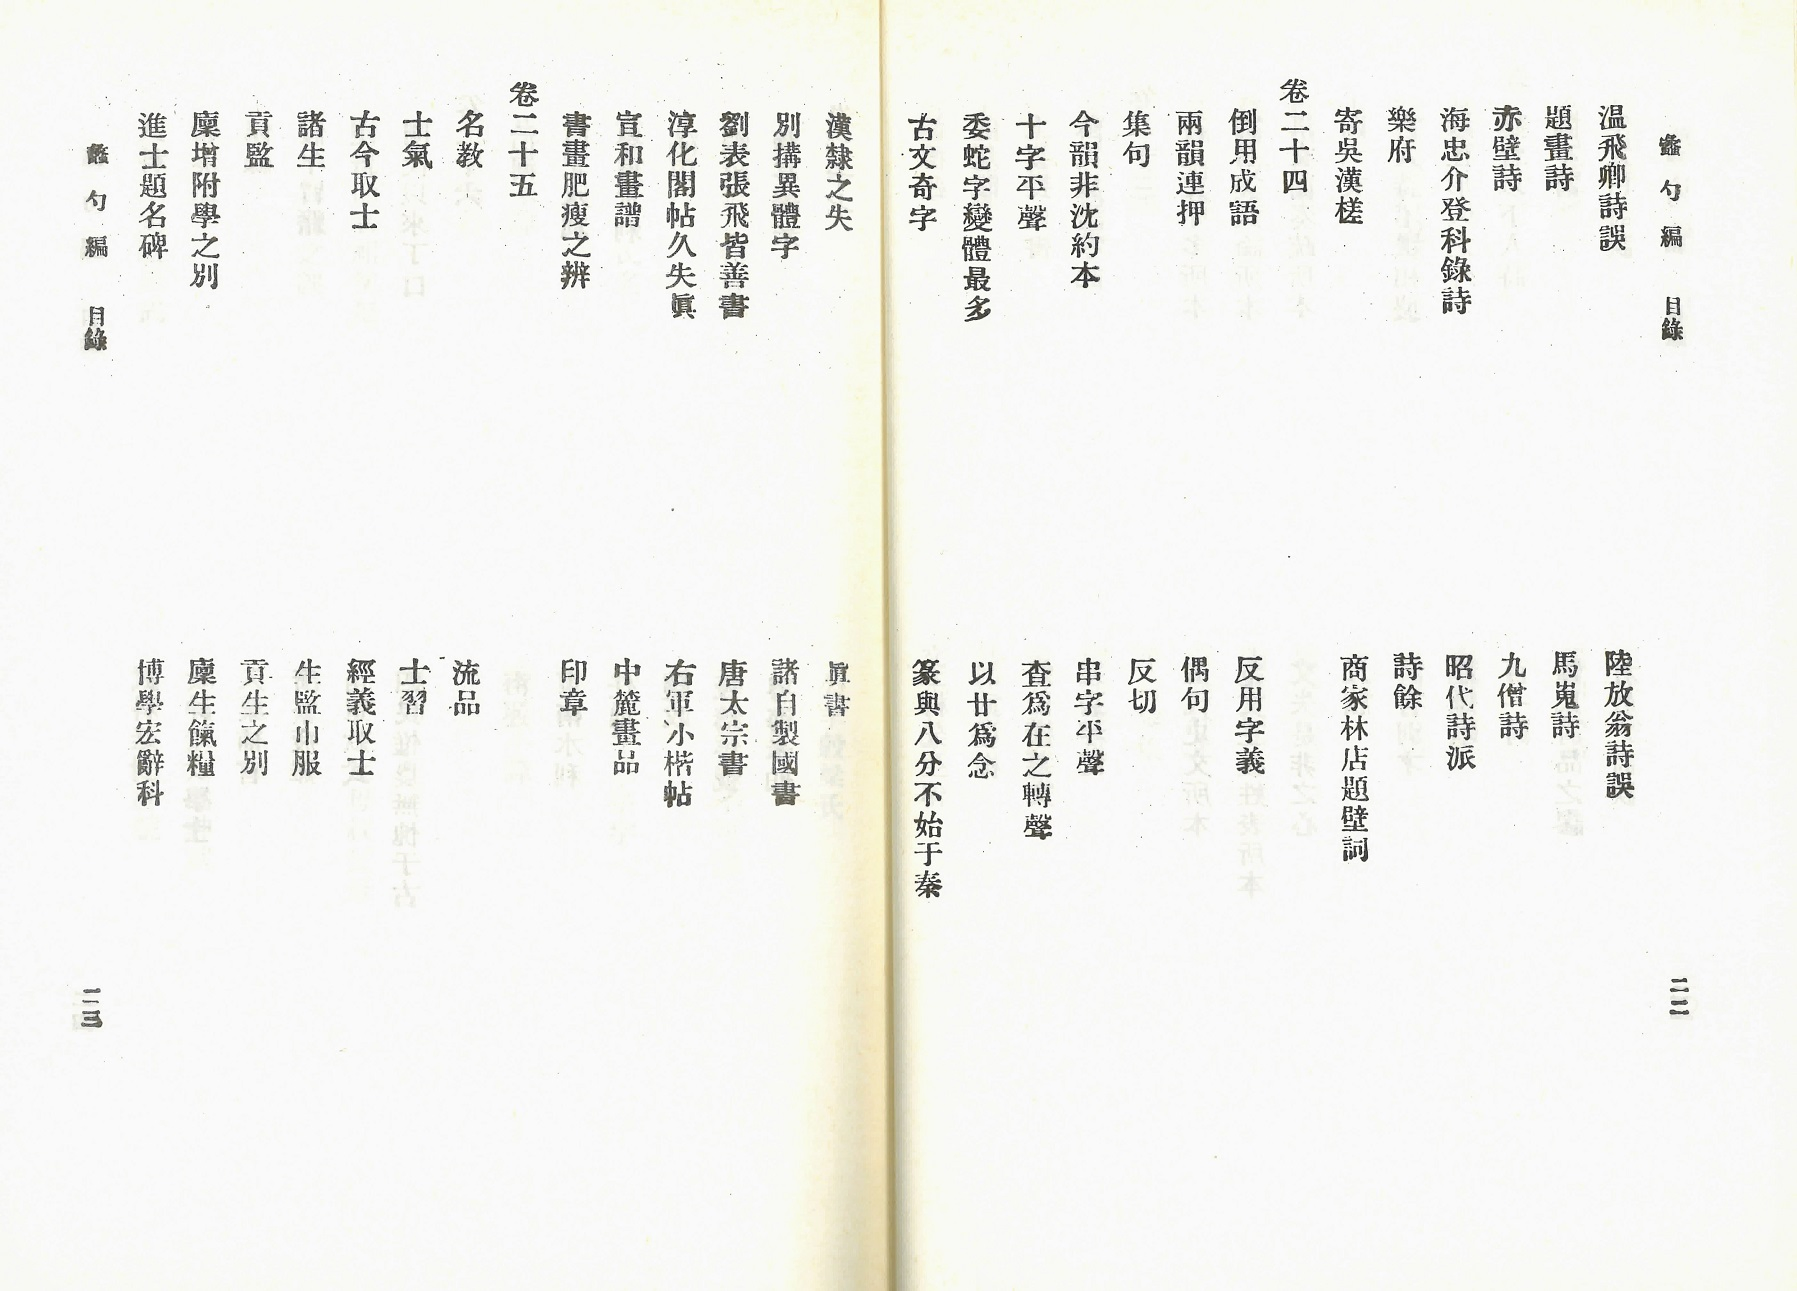 蠡勺編　目錄　二二
温飛卿詩誤　陸放翁詩誤
題畫詩　馬嵬詩
赤壁詩　九僧詩
海忠介登科錄詩　昭代詩派
樂府　詩餘
寄吳漢槎　商家林店題壁詞
卷二十四
倒用成語　反用字義
兩韻連押　偶句
集句　反切
今韻非沈約本　串字平聲
十字平聲　查爲在之轉聲
委蛇字變體最多　以廿爲念
古文奇字　篆與八分不始于秦
漢隸之失　眞書
別搆異體字　諸自製國書
劉表張飛皆善書　唐太宗書
淳化閣帖久失眞　右軍小楷帖
宣和畫譜　中麓畫品
書畫肥瘦之辨　印章
卷二十五
名教　流品
士氣　士習
古今取士　經義取士
諸生　生監巾服
貢監　貢生之別
廩增附學之別　廩生餼糧
進士題名碑　博學宏辭科
蠡勺編　目錄　二三